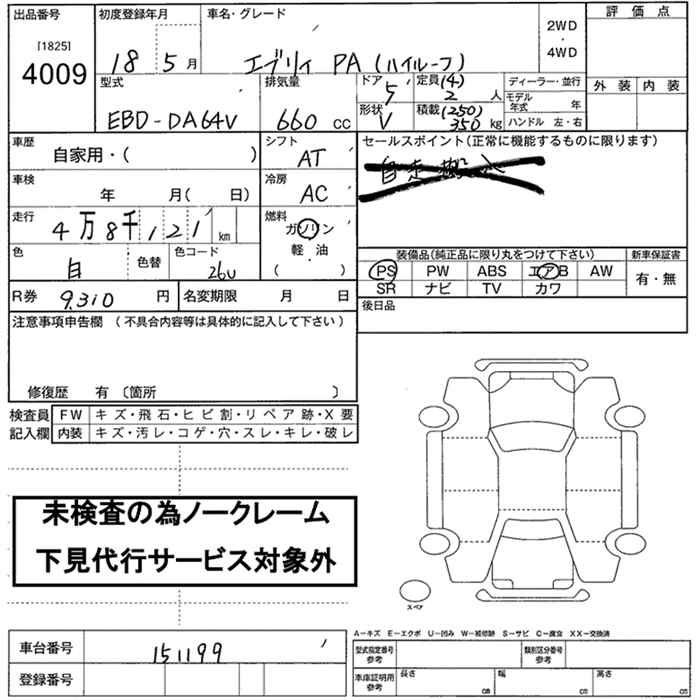 出品番号 初度登録年月 車名・グレード 評価点
[1825]
4009 18 5 月 エブリィ PA (ハイルーフ) 2WD ・ 4WD
型式 排気量 ドア 5 定員 (4) 2 人 ディーラー・並行 外装 内装
モデル年式 年
EBD-DA64V 660 cc 形状 V 積載 (250) 350 kg ハンドル 左・右
車歴 シフト セールスポイント(正常に機能するものに限ります)
自家用・( ) AT
車検 冷房
年 月( 日) AC
走行 燃料
4万8千121 km ガソリン
軽・油
( )
色 色替 色コード 装備品(純正品に限り丸をつけて下さい) 新車保証書
白 26U PS PW ABS エアB AW 有・無
SR ナビ TV カワ
R券 9,310 円 名変期限 月 日 後日品
注意事項申告欄 (不具合内容等は具体的に記入して下さい)
修復歴 有 〔箇所 〕
検査員 FW キズ・飛石・ヒビ割・リペア跡・X要
記入欄 内装 キズ・汚レ・コゲ・穴・スレ・キレ・破レ
未検査の為ノークレーム
下見代行サービス対象外
スペア
A-キズ E-エクボ U-凹み W-補修跡 S-サビ C-腐食 XX-交換済
車台番号 151199 型式指定番号 参考 類別区分番号 参考
登録番号 車庫証明用 参考 長さ cm 幅 cm 高さ cm